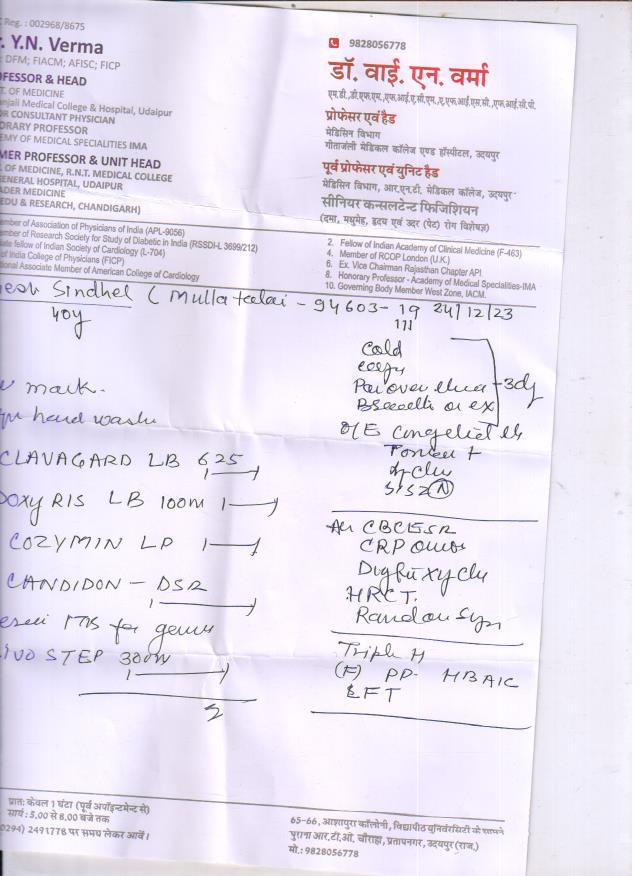 Reg. : 002968/8675
Y.N. Verma
DFM; FIACM; AFISC; FICP
OFESSOR & HEAD
T. OF MEDICINE
anjali Medical College & Hospital, Udaipur
OR CONSULTANT PHYSICIAN
ORARY PROFESSOR
EMY OF MEDICAL SPECIALITIES IMA
MER PROFESSOR & UNIT HEAD
OF MEDICINE, R.N.T. MEDICAL COLLEGE
GENERAL HOSPITAL, UDAIPUR
ADER MEDICINE
EDU & RESEARCH, CHANDIGARH)
9828056778
डॉ. वाई. एन. वर्मा
एम.डी.,डी.एफ.एम.,एफ.आई.ए.सी.एम.,ए.एफ.आई.एस.सी.,एफ.आई.सी.पी.
प्रोफेसर एवं हैड
मेडिसिन विभाग
गीतांजली मेडिकल कॉलेज एण्ड हॉस्पीटल, उदयपुर
पूर्व प्रोफेसर एवं युनिट हैड
मेडिसिन विभाग, आर.एन.टी. मेडिकल कॉलेज, उदयपुर
सीनियर कन्सलटेन्ट फिजिशियन
(दमा, मधुमेह, हृदय एवं उदर (पेट) रोग विशेषज्ञ)
ember of Association of Physicians of India (APL-9056)
ember of Research Society for Study of Diabetic in India (RSSDI-L 3699/212)
ate fellow of Indian Society of Cardiology (L-704)
of India College of Physicians (FICP)
tional Associate Member of American College of Cardiology
2. Fellow of Indian Academy of Clinical Medicine (F-463)
4. Member of RCOP London (U.K.)
6. Ex. Vice Chairman Rajasthan Chapter API.
8. Honorary Professor - Academy of Medical Specialities-IMA
10. Governing Body Member West Zone, IACM.
esh Sindhel (Mulla talai - 94603- 19 24/12/23
40y 111
Cold
3dy
mark.
hand wash
O/E Congested
CLAVAGARD LB 625
S1S2 N
DOXYRIS LB 100m
CBC ESR
COZYMIN LP
CRP
CANDIDON - DSR
HRCT.
for
Random
STEP 300m
Triple H
(F) PP- HBAIC
LFT
2
प्रातः केवल 1 घंटा (पूर्व अपॉइन्टमेन्ट से)
सायं : 5.00 से 8.00 बजे तक
(0294) 2491778 पर समय लेकर आवें।
65-66, आशापुरा कॉलोनी, विद्यापीठ युनिवर्सिटी के सामने
पुराना आर.टी.ओ. चौराहा, प्रतापनगर, उदयपुर (राज.)
मो.: 9828056778